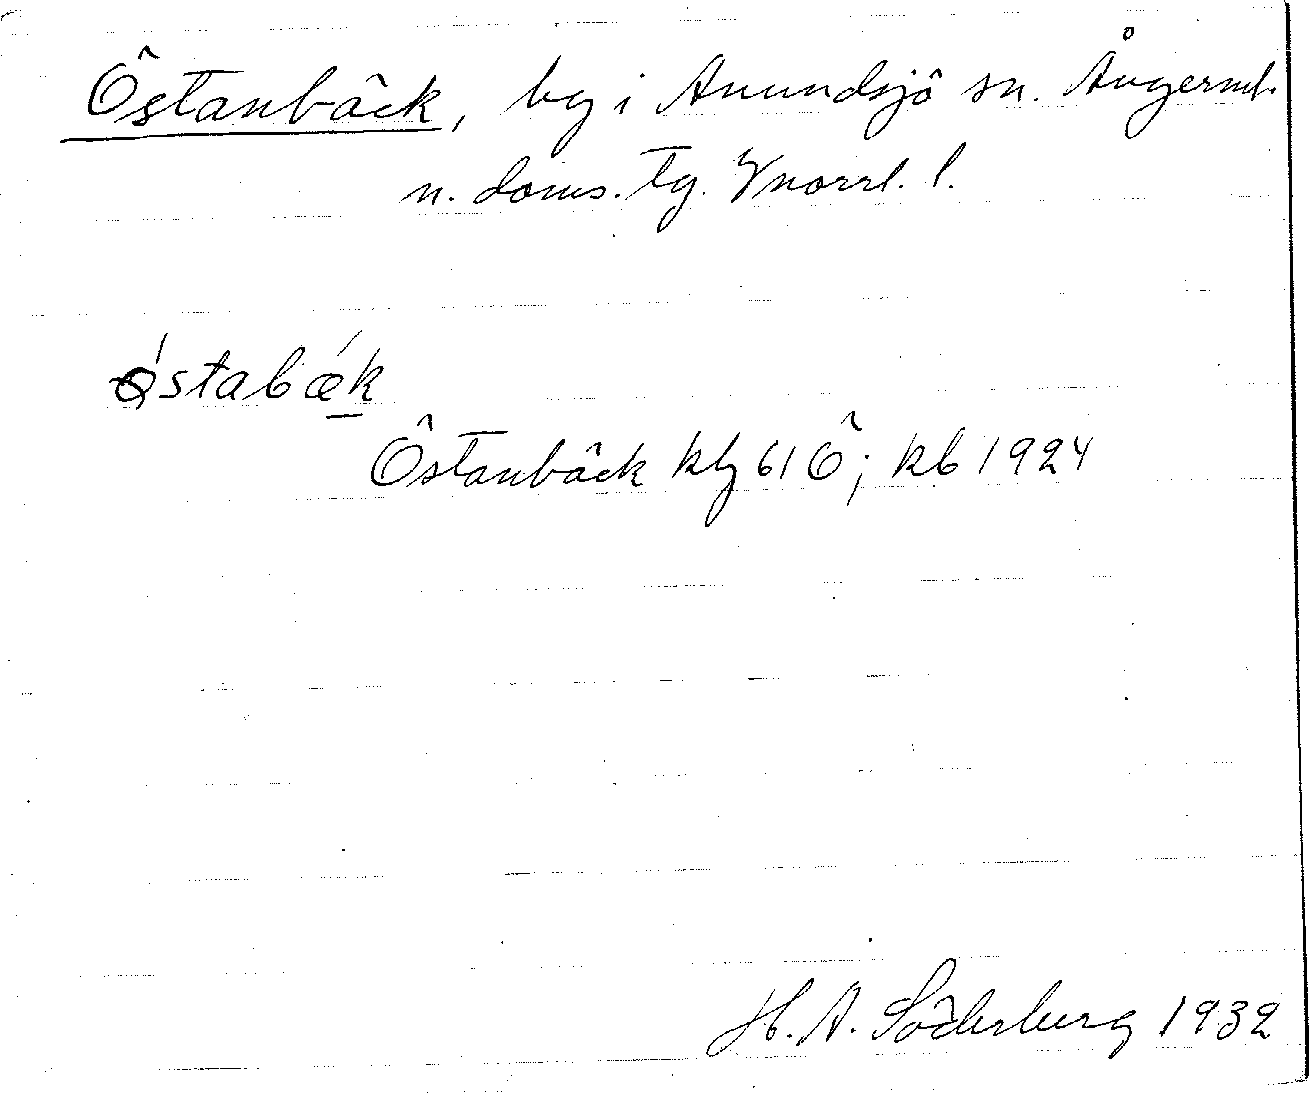 Östanbäck, by i Anundsjö sn. Ångerml.
n. doms. tg. Vnorrl. l.
ǿstabǽk
Östanbäck kbl 61 Ö; kb 1924
H. A. Söderberg 1932